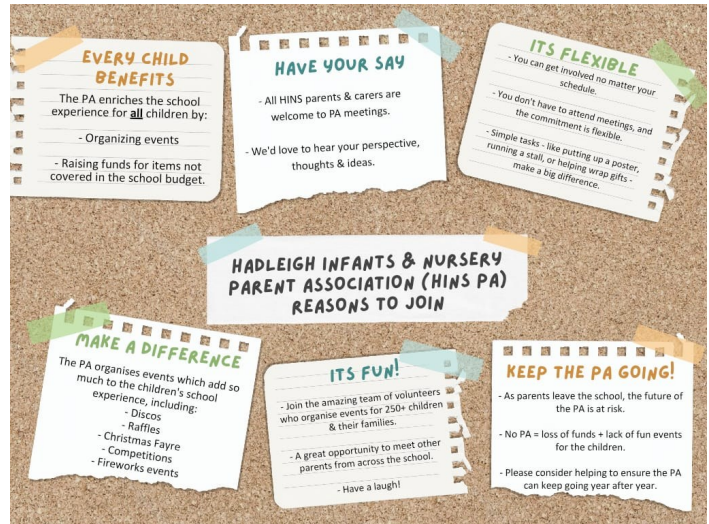 EVERY CHILD
BENEFITS
The PA enriches the school
experience for all children by:
- Organizing events
- Raising funds for items not
covered in the school budget.
HAVE YOUR SAY
- All HINS parents & carers are
welcome to PA meetings.
- We'd love to hear your perspective,
thoughts & ideas.
ITS FLEXIBLE
- You can get involved no matter your
schedule.
- You don't have to attend meetings, and
the commitment is flexible.
- Simple tasks - like putting up a poster,
running a stall, or helping wrap gifts -
make a big difference.
HADLEIGH INFANTS & NURSERY
PARENT ASSOCIATION (HINS PA)
REASONS TO JOIN
MAKE A DIFFERENCE
The PA organises events which add so
much to the children's school
experience, including:
- Discos
- Raffles
- Christmas Fayre
- Competitions
- Fireworks events
ITS FUN!
- Join the amazing team of volunteers
who organise events for 250+ children
& their families.
- A great opportunity to meet other
parents from across the school.
- Have a laugh!
KEEP THE PA GOING!
- As parents leave the school, the future of
the PA is at risk.
- No PA = loss of funds + lack of fun events
for the children.
- Please consider helping to ensure the PA
can keep going year after year.